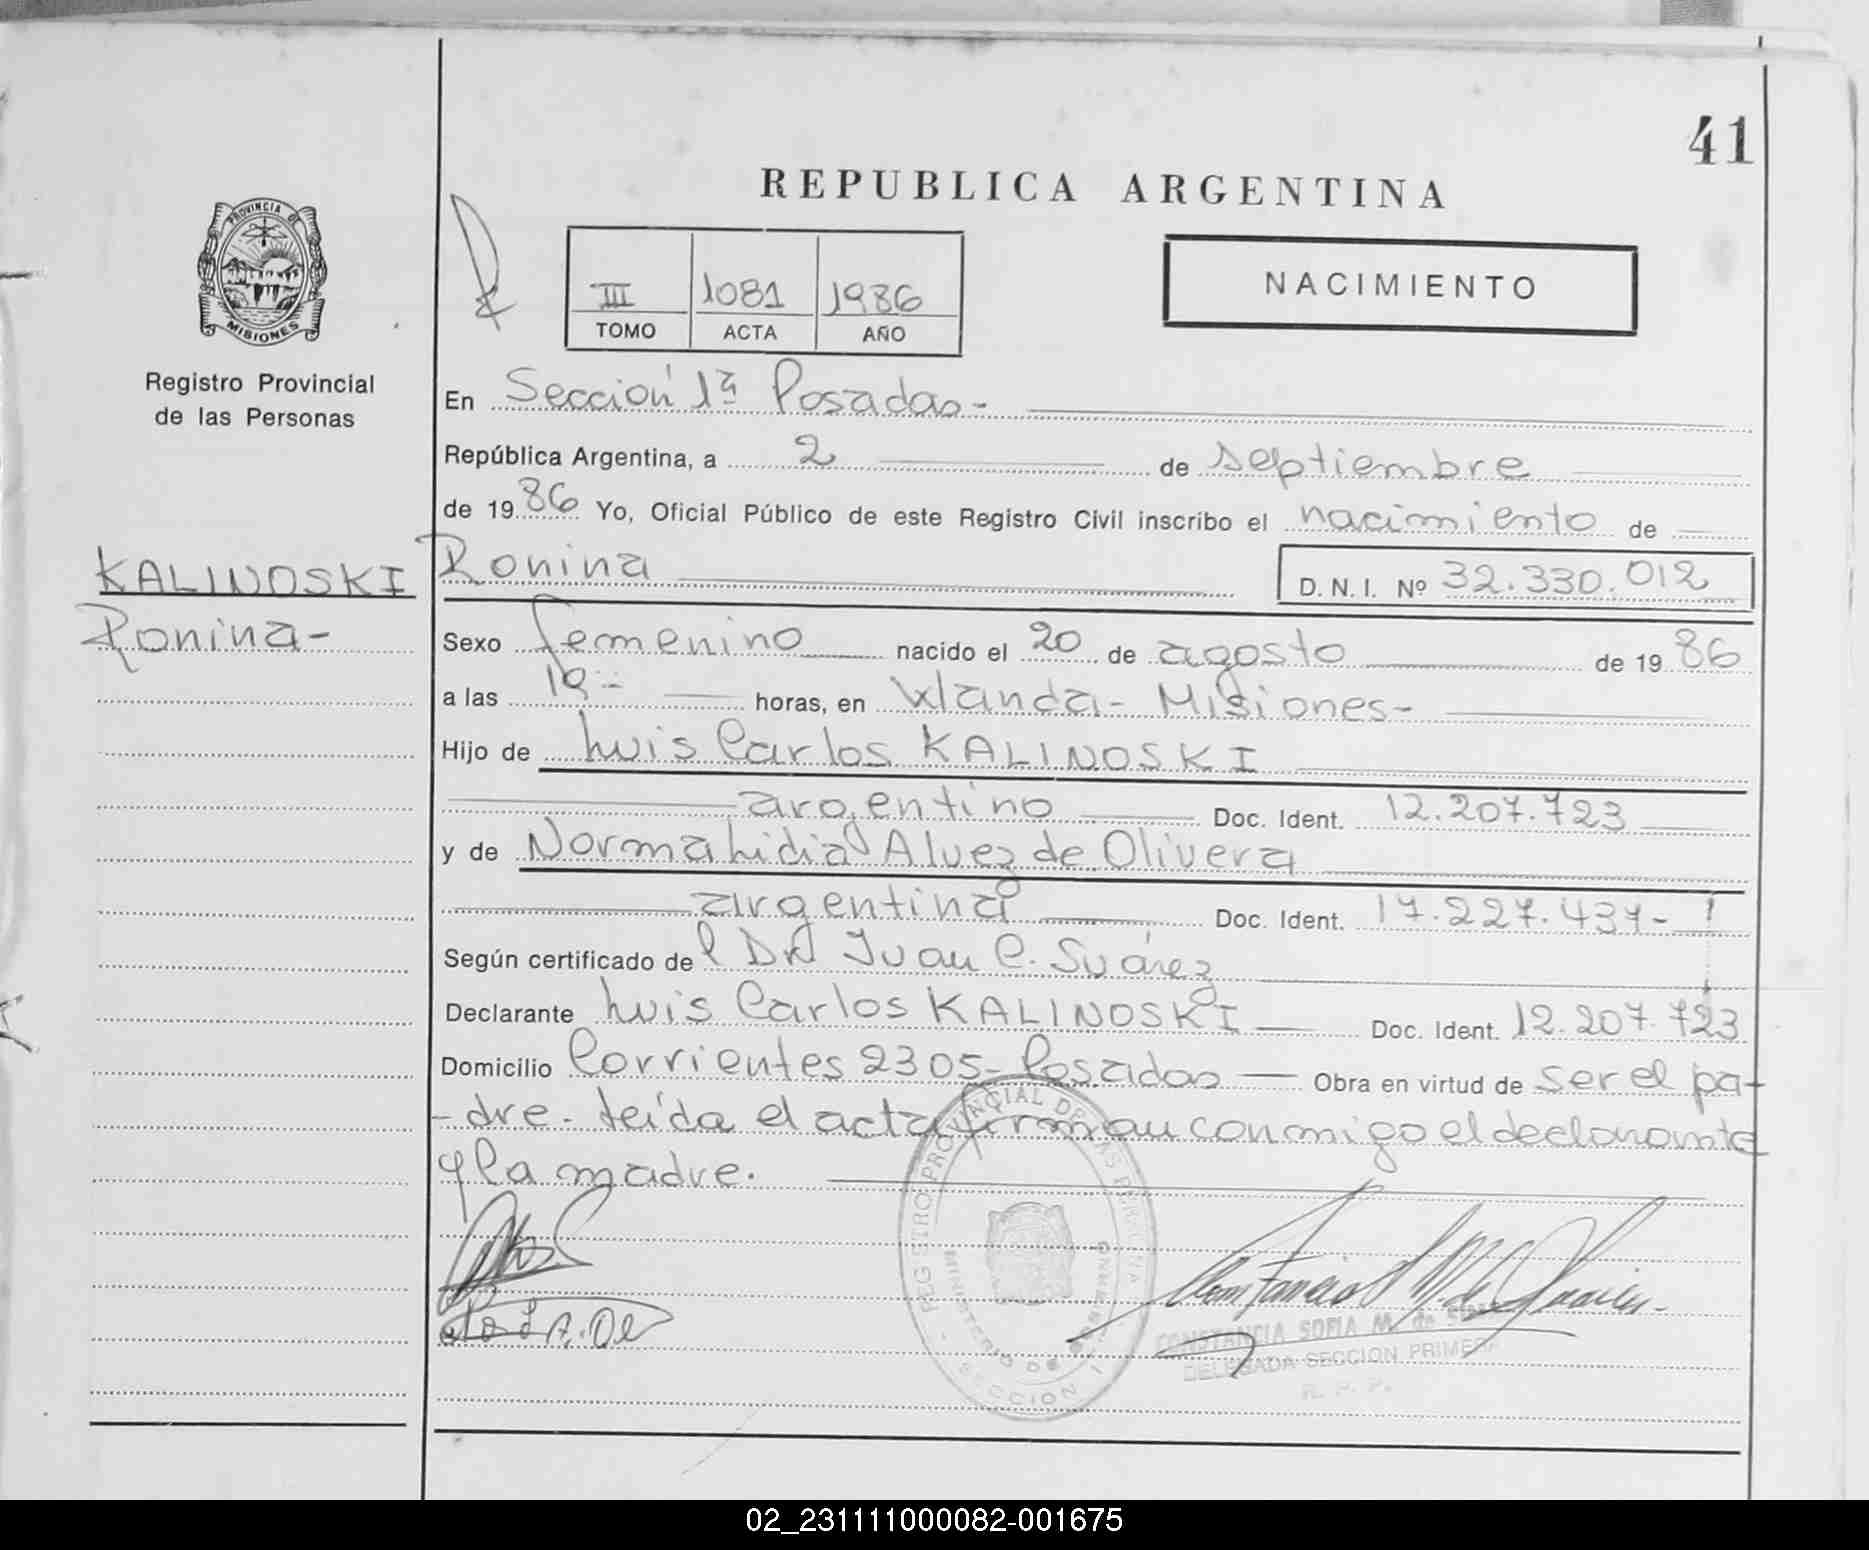 41
REPUBLICA ARGENTINA
PROVINCIA DE
MISIONES
Registro Provincial
de las Personas
III 1081 1986
TOMO ACTA AÑO
NACIMIENTO
En Sección 1ª Posadas-
República Argentina, a 2 de septiembre
de 1986 Yo, Oficial Público de este Registro Civil inscribo el nacimiento de
KALINOSKI
Ronina-
Ronina D. N. I. Nº 32.330.012
Sexo femenino nacido el 20 de agosto de 1986
a las 19- horas, en Wanda- Misiones-
Hijo de Luis Carlos KALINOSKI
argentino Doc. Ident. 12.207.723
y de Norma Lidia Alvez de Olivera
argentina Doc. Ident. 17.227.437-
Según certificado del Dr Juan C. Suárez
Declarante Luis Carlos KALINOSKI Doc. Ident. 12.207.723
Domicilio Corrientes 2305- Posadas Obra en virtud de ser el pa-
-dre- Leída el acta firman conmigo el declarante
y la madre.
REGISTRO PROVINCIAL DE LAS PERSONAS
MINISTERIO DE GOBIERNO
SECCION 1
CONSTANCIA SOFIA M. de
DELEGADA SECCION PRIMERA
R. P. P.
02_231111000082-001675